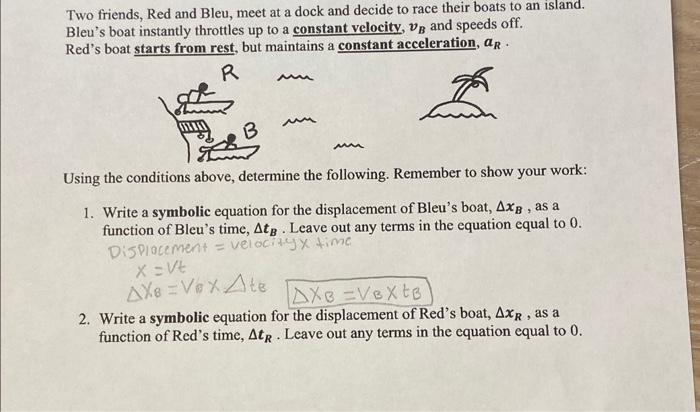 Two friends, Red and Bleu, meet at a dock and decide to race their boats to an island.
Bleu's boat instantly throttles up to a constant velocity, v_B and speeds off.
Red's boat starts from rest, but maintains a constant acceleration, a_R .
R
B
Using the conditions above, determine the following. Remember to show your work:
1. Write a symbolic equation for the displacement of Bleu's boat, Δx_B , as a
function of Bleu's time, Δt_B . Leave out any terms in the equation equal to 0.
Displacement = velocity x time
x = vt
ΔX_B = V_B X Δt_B
ΔX_B = V_B X t_B
2. Write a symbolic equation for the displacement of Red's boat, Δx_R , as a
function of Red's time, Δt_R . Leave out any terms in the equation equal to 0.